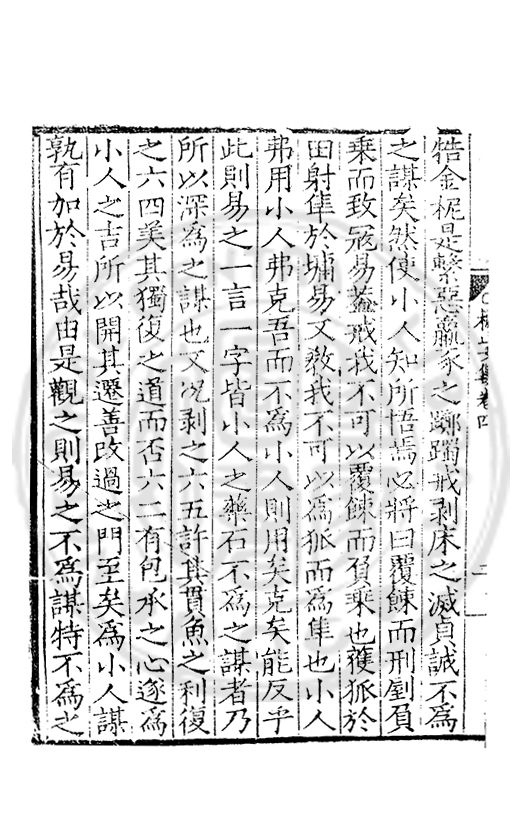 牿金柅是繫惡羸豕之躑躅戒剥床之滅貞誠不為
之謀矣然使小人知所悟焉必將曰覆餗而刑剭負
乗而致冦易蓋戒我不可以覆餗而負乗也獲狐於
田射隼於墉易又教我不可以為狐而為隼也小人
弗用小人弗克吾而不為小人則用矣克矣能反乎
此則易之一言一字皆小人之藥石不為之謀者乃
所以深為之謀也又况剥之六五許其貫魚之利復
之六四美其獨復之道而否六二有包承之心遂為
小人之吉所以開其遷善改過之門至矣為小人謀
孰有加於易哉由是觀之則易之不為謀特不為之
山文集卷四
二